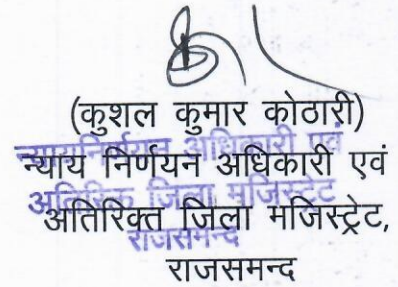 (कुशल कुमार कोठारी)
न्यायनिर्णयन अधिकारी एवं
न्याय निर्णयन अधिकारी एवं
अतिरिक्त जिला मजिस्ट्रेट
अतिरिक्त जिला मजिस्ट्रेट,
राजसमन्द
राजसमन्द